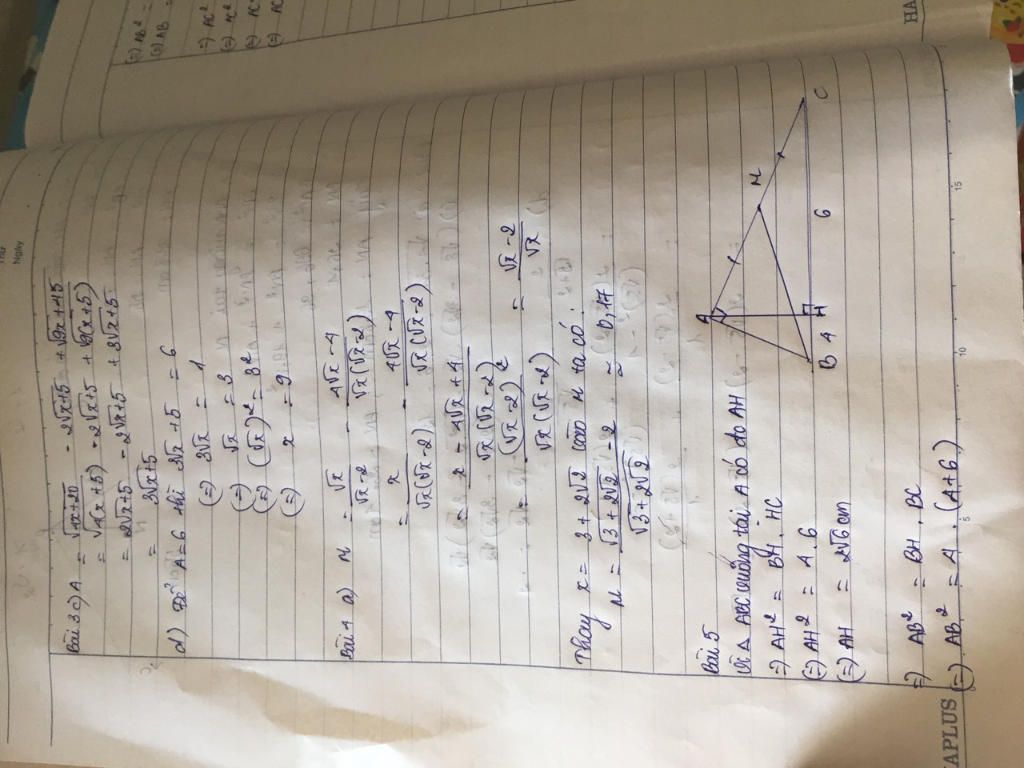 Bài 3 c) A = √4x+20 - 2√x+5 + √9x+45
= √4(x+5) - 2√x+5 + √9(x+5)
= 2√x+5 - 2√x+5 + 3√x+5
= 3√x+5
d) Để A = 6 thì 3√x+5 = 6
(=) 3√x = 1
(=) √x = 3
(=) (√x)² = 3²
(=) x = 9
Bài 4 a) M = √x / √x-2 - 4√x-4 / √x(√x-2)
= x / √x(√x-2) - 4√x-4 / √x(√x-2)
= x - 4√x + 4 / √x(√x-2)
= (√x-2)² / √x(√x-2) = √x-2 / √x
Thay x = 3+2√2 vào M ta có:
M = √3+2√2 - 2 / √3+2√2 ≃ 0,17
Bài 5
Vì Δ ABC vuông tại A có đcao AH
=) AH² = BH . HC
(=) AH² = 4 . 6
(=) AH = 2√6 cm
=) AB² = BH . BC
(=) AB² = 4 . (4+6)
A
M
B 4 H 6 C
(=) AB² =
(=) AB =
=) AC²
(=) AC²
(=) AC
(=) AC
Ngày
5 10 15
HA